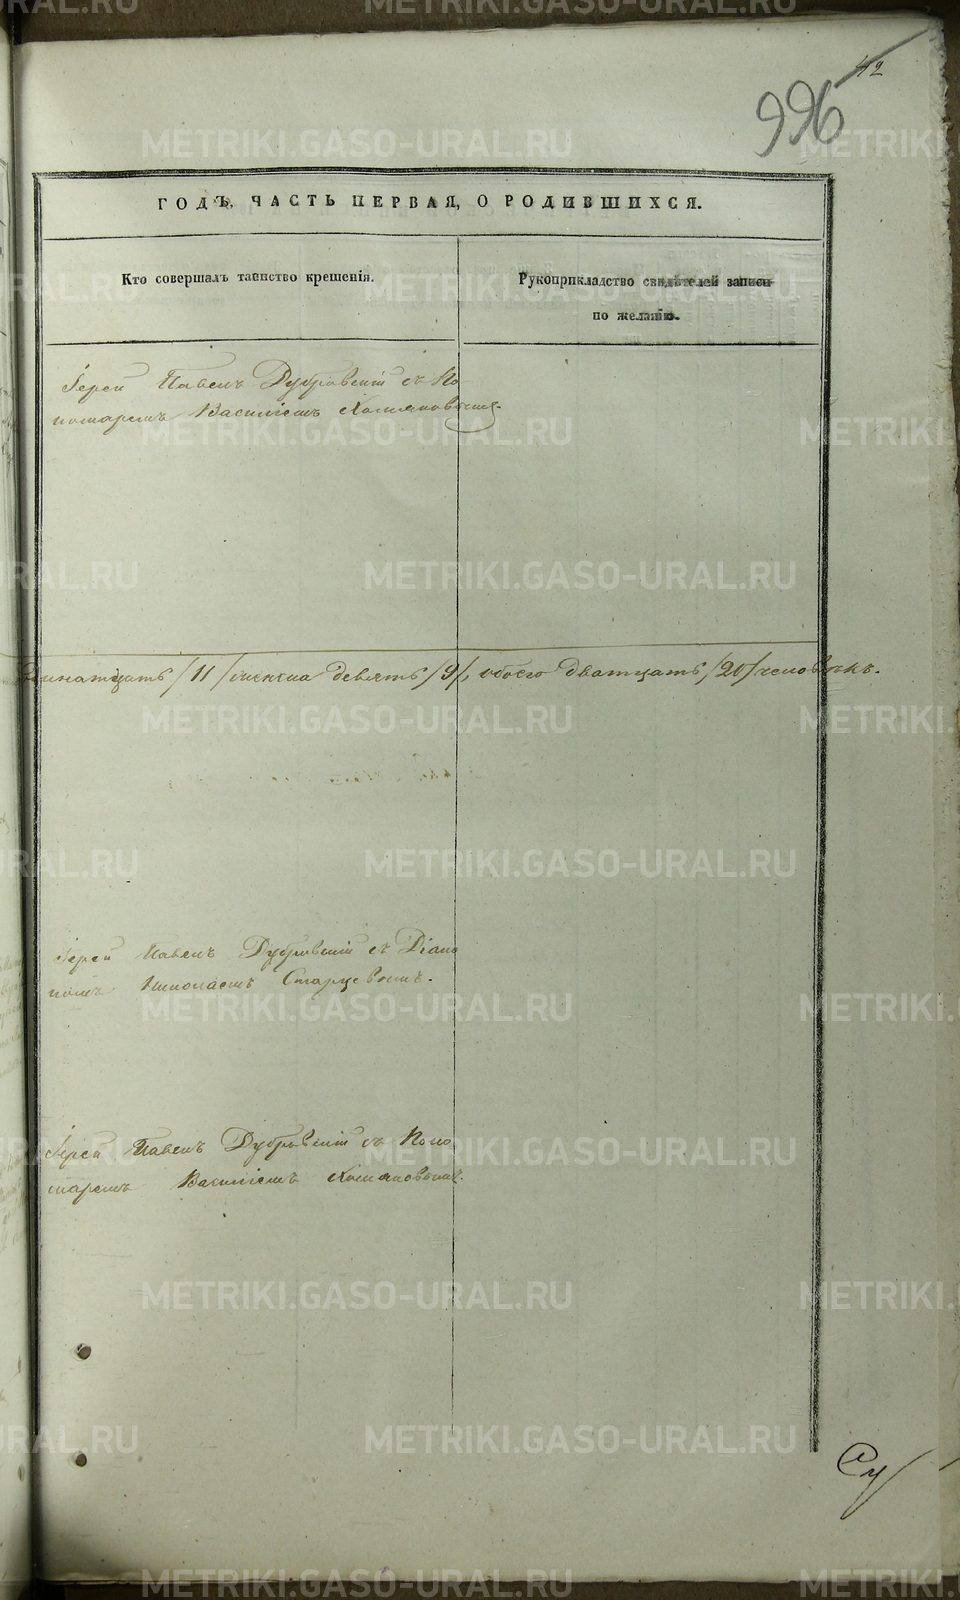 42
996
ГОДЪ, ЧАСТЬ ПЕРВАЯ, О РОДИВШИХСЯ.
Кто совершалъ таинство крещенія.
Рукоприкладство свидѣтелей записи
по желанію.
Іерей Павелъ Дубровскій съ По
номаремъ Василіемъ Хомяковымъ.
динатцать /11/ женска девять /9/, обоего дватцать /20/ человѣкъ.
Іерей Павелъ Дубровскій съ Діако
номъ Николаемъ Старцевымъ.
Іерей Павелъ Дубровскій съ Поно
маремъ Василіемъ Хомяковымъ.
METRIKI.GASO-URAL.RU